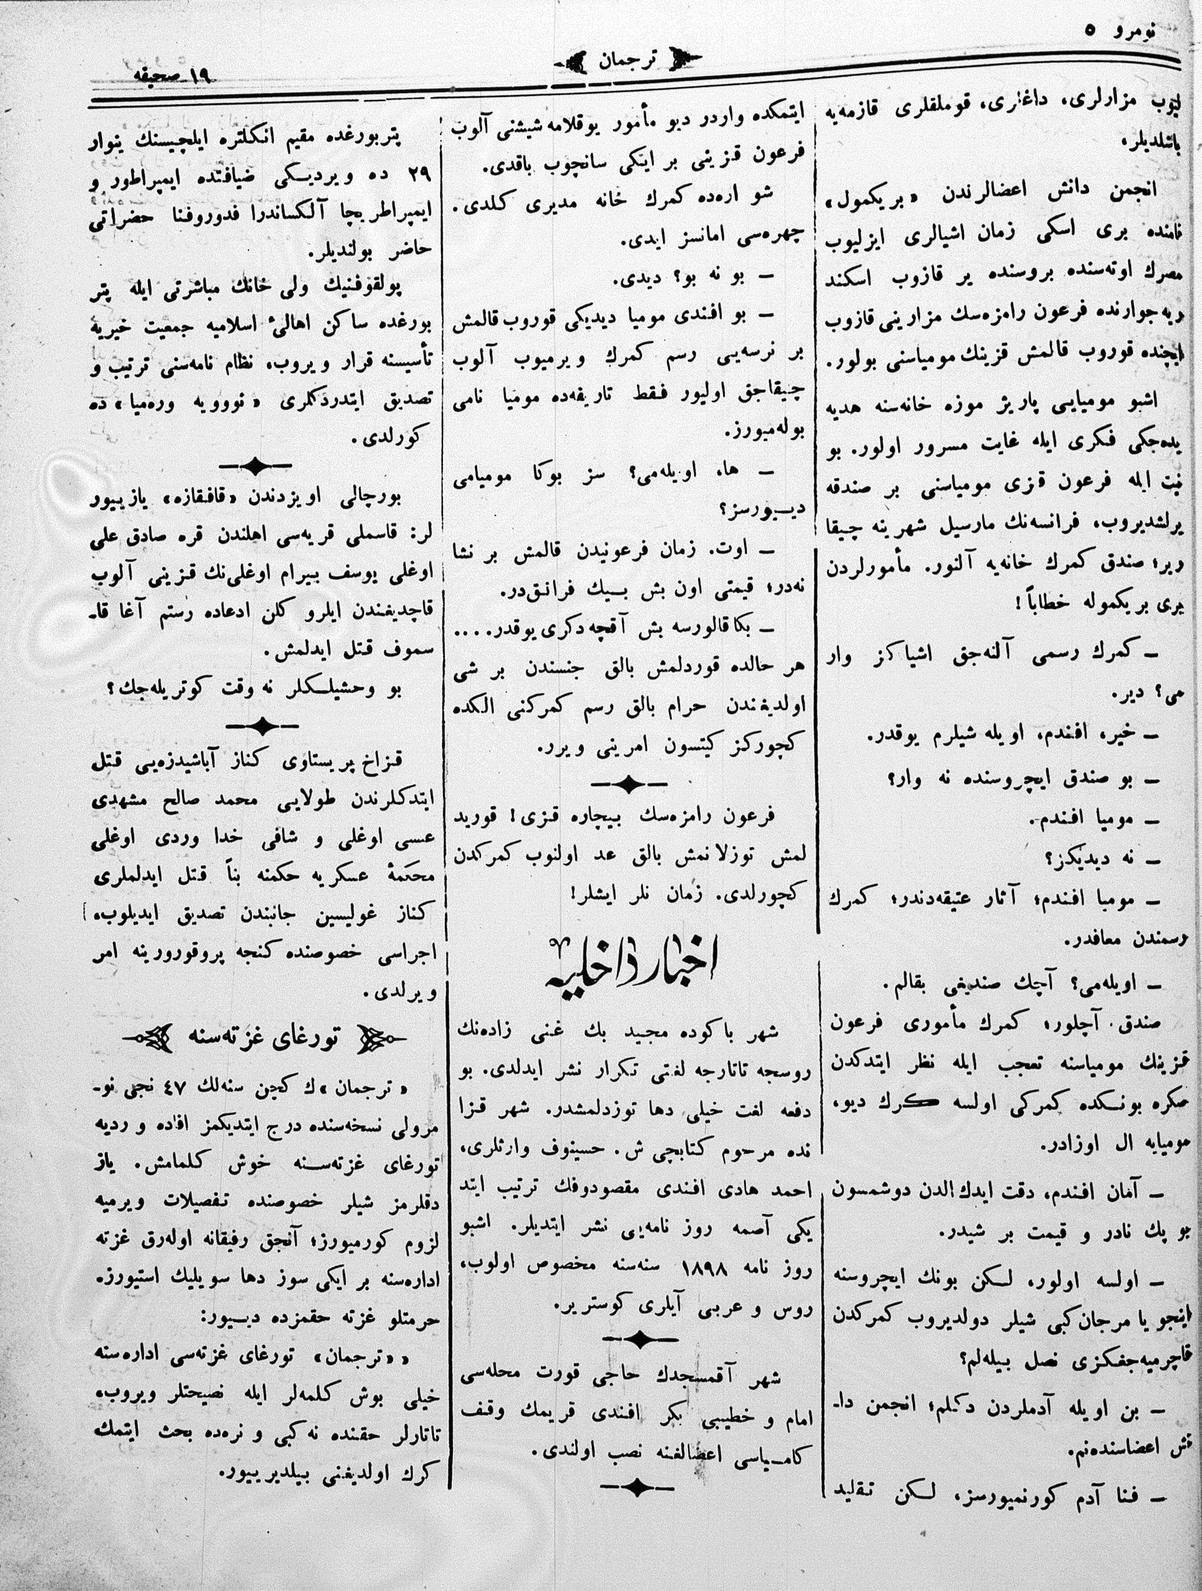 نومرو ٥
ترجمان
١٩ صحيفه
ليوب مزارلرى، داغلرى، قوملقلرى قازمه‌يه
باشلديلر.
انجمن دانش اعضالرندن «بريكمول»
نامنده برى اسكى زمان اشيالرى ايزليوب
مصرك اوته‌سنده بروسنده ير قازوب اسكند
ريه جوارنده فرعون رامزه‌سك مزارينى قازوب
ايچنده قوروب قالمش قزينك مومياسنى بولور.
اشبو موميايى پاريژ موزه خانه‌سنه هديه
يده‌جكى فكرى ايله غايت مسرور اولور. بو
نيت ايله فرعون قزى مومياسنى بر صندقه
يرلشديروب، فرانسه‌نك مارسيل شهرينه چيقا
رير؛ صندق كمرك خانه‌يه آلنور. مأمورلردن
برى بريكموله خطاباً!
ـ كمرك رسمى آلنه‌جق اشياكز وار
مى؟ دير.
ـ خير، افندم، اويله شيلرم يوقدر.
ـ بو صندق ايچروسنده نه وار؟
ـ موميا افندم.
ـ نه ديديكز؟
ـ موميا افندم؛ آثار عتيقه‌دندر؛ كمرك
رسمندن معافدر.
ـ اويله‌مى؟ آچك صنديغى بقالم.
صندق آچلور؛ كمرك مأمورى فرعون
قزينك مومياسنه تعجب ايله نظر ايتدكدن
صكره بونسكده كمركى اولسه كرك ديو،
موميايه ال اوزادر.
ـ آمان افندم، دقت ايدك الدن دوشمسون
بو پك نادر و قيمت بر شيدر.
ـ اولسه اولور، لسكن بونك ايچروسنه
اينجو يا مرجان كبى شيلر دولديروب كمركدن
قاچرميه‌جغكزى نصل بيله‌لم؟
ـ بن اويله آدملردن دكلم؛ انجمن دا۔
نش اعضاسنده‌نم.
ـ فنا آدم كورنميورسز، لسكن تقليد
ايتمكده واردر ديو مأمور يوقلامه شيشنى آلوب
فرعون قزينى بر ايكى سانچوب باقدى.
شو اره‌ده كمرك خانه مديرى كلدى.
چهره‌سى امانسز ايدى.
ـ بو نه بو؟ ديدى.
ـ بو افندى موميا ديديكى قوروب قالمش
بر نرسه‌يى رسم كمرك ويرميوب آلوب
چيقاجق اوليور فقط تاريفه‌ده موميا نامى
بوله‌ميورز.
ـ ها، اويله‌مى؟ سز بوكا موميامى
ديـيورسز؟
ـ اوت. زمان فرعونيدن قالمش بر نشا
نه‌در؛ قيمتى اون بش بـيك فرانـق‌در.
ـ بكا قالورسه بش آقچه دكرى يوقدر....
هر حالده قوردلمش بالق جنسندن بر شى
اولديغندن حرام بالق رسم كمركنى الـكده
كچوركز كيتسون امرينى ويرر.
فرعون رامزه‌سك بيچاره قزى! قوريد
لمش توزلانمش بالق عد اولنوب كمركدن
كچورلدى. زمان نلر ايشلر!
اخبار داخليه
شهر باكوده مجيد بك غنى زاده‌نك
روسجه تاتارجه لغتى تكرار نشر ايدلدى. بو
دفعه لغت خيلى دها توزدلمشدر. شهر قزا
نده مرحوم كتابچى ش. حسينوف وارثلرى،
احمد هادى افندى مقصودوفك ترتيب ايتد
يكى آصمه روز نامه‌يى نشر ايتديلر. اشبو
روز نامه ١٨٩٨ سنه‌سنه مخصوص اولوب،
روس و عربى آيلرى كوسترير.
شهر آقمسجدك حاجى قورت محله‌سى
امام و خطيبى بكر افندى قريمك وقف
كاميسياسى اعضالغنه نصب اولندى.
پتربورغده مقيم انكلتره ايلچيسنك ينوار
٢٩ ده ويرديـكى ضيافتده ايمپراطور و
ايمپراطريچا آلكساندرا فدوروفنا حضراتى
حاضر بولنديلر.
پولقوفنيك ولى خانك مباشرتى ايله پتر
بورغده ساكن اهالئ اسلاميه جمعيت خيريه
تأسيسنه قرار ويروب، نظام نامه‌سنى ترتيب و
تصديق ايتدردكلرى «نوويه وره‌ميا» ده
كورلدى.
بورچالى اويزدندن «قافقازه» يازييور
لر: قاسملى قريه‌سى اهلندن قره صادق على
اوغلى يوسف بيرام اوغلى‌نك قزينى آلوب
قاچديغندن ايلرو كلن ادعاده رستم آغا قا۔
سموف قتل ايدلمش.
بو وحشيلـكلر نه وقت كوتريله‌جك؟
قزاخ پريستاوى كناز آباشيدزه‌يى قتل
ايتدكلرندن طولايى محمد صالح مشهدى
عسى اوغلى و شافى خدا وردى اوغلى
محكمهٔ عسكريه حكمنه بناً قتل ايدلملرى
كناز غوليسين جانبندن تصديق ايديلوب،
اجراسى خصوصنده كنجه پروقورورينه امر
ويرلدى.
تورغاى غزته‌سنه
«ترجمان»ك كچن سنه‌لك ٤٧ نجى نو۔
مرولى نسخه‌سنده درج ايتديكمز افاده و رديه
تورغاى غزته‌سـنه خوش كلمامش. ياز
دقلرمز شيلر خصوصنده تفصيلات ويرميه
لزوم كورميورز؛ آنجق رفيقانه اوله‌رق غزته
اداره‌سنه بر ايكى سوز دها سويليك استيورز.
حرمتلو غزته حقمزده ديـيور:
««ترجمان» تورغاى غزته‌سى اداره‌سنه
خيلى بوش كلمه‌لر ايله نصيحتلر ويروب،
تاتارلر حقنده نه كبى و نره‌ده بحث ايتمك
كرك اولديغنى بيلديرييور.